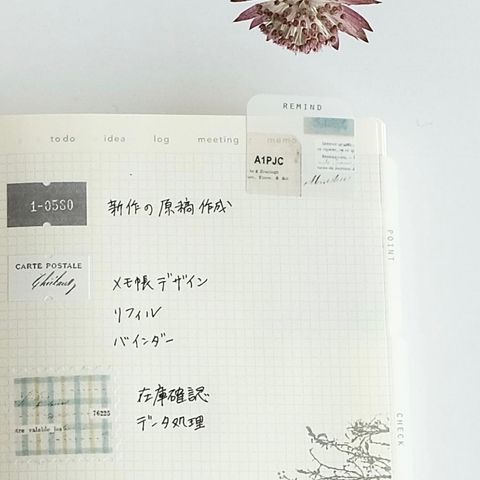 REMIND
todo idea log meeting memo
A1PJC
1-0580
新作の原稿作成
POINT
CARTE POSTALE
メモ帳デザイン
リフィル
バインダー
在庫確認
データ処理
76225
are valuable
CHECK